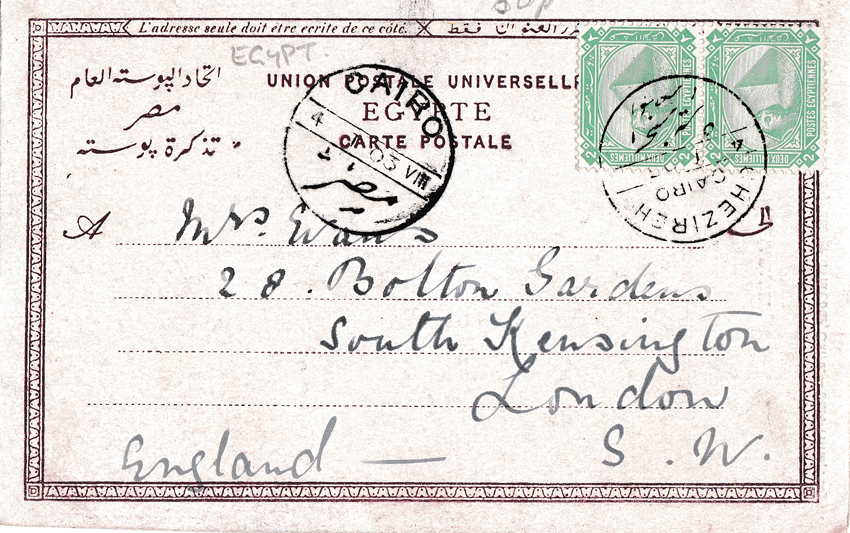 50p
L'adresse seule doit être écrite de ce côté. العنوان فقط
EGYPT.
اتحاد البوسته العام
UNION POSTALE UNIVERSELLE
مصر
EGYPTE
تذكرة بوسته
CARTE POSTALE
CAIRO
4 03 VIII
مصر
POSTES EGYPTIENNES
DEUX MILLIEMES
2
2
POSTES EGYPTIENNES
DEUX MILLIEMES
2
GHEZIREH
CAIRO
A Mrs. Evans
28. Bolton Gardens
South Kensington
London
England — S. W.